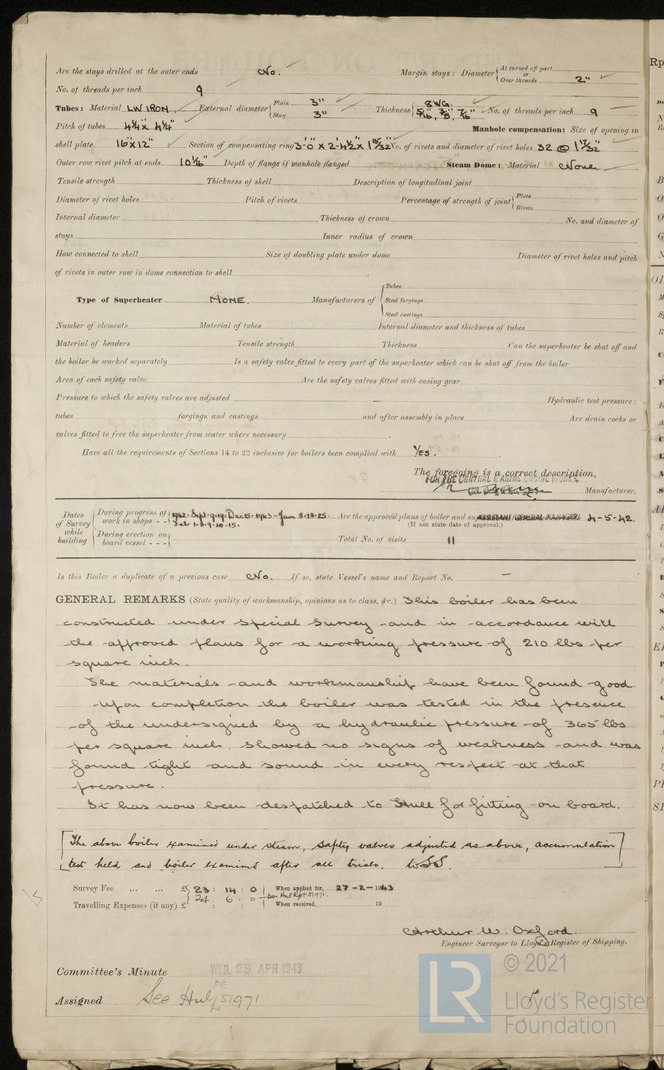 Are the stays drilled at the outer ends No. Margin stays: Diameter { At turned off part or Over threads 2"
No. of threads per inch 9
Tubes: Material LW IRON. External diameter { Plain 3" Stay 3" Thickness { 8WG. 5/16", 3/8", 7/16" No. of threads per inch 9
Pitch of tubes 4¼" x 4¼" Manhole compensation: Size of opening in
shell plate 16"x12" Section of compensating ring No. of rivets and diameter of rivet holes 32 @ 1 7/32"
Outer row rivet pitch at ends 10 1/16" Depth of flange if manhole flanged Steam Dome: Material None
Tensile strength Thickness of shell Description of longitudinal joint
Diameter of rivet holes Pitch of rivets Percentage of strength of joint { Plate Rivets
Internal diameter Thickness of crown No. and diameter of
stays Inner radius of crown
How connected to shell Size of doubling plate under dome Diameter of rivet holes and pitch
of rivets in outer row in dome connection to shell
Type of Superheater NONE. Manufacturers of { Tubes Steel forgings Steel castings
Number of elements Material of tubes Internal diameter and thickness of tubes
Material of headers Tensile strength Thickness Can the superheater be shut off and
the boiler be worked separately Is a safety valve fitted to every part of the superheater which can be shut off from the boiler
Area of each safety valve Are the safety valves fitted with easing gear
Pressure to which the safety valves are adjusted Hydraulic test pressure:
tubes forgings and castings and after assembly in place Are drain cocks or
valves fitted to free the superheater from water where necessary
Have all the requirements of Sections 14 to 22 inclusive for boilers been complied with Yes.
The foregoing is a correct description,
FOR THE CENTRAL MARINE ENGINE WORKS.
Manufacturer.
Dates of Survey while building { During progress of work in shops - - 1942. Sept. 9. 17. Dec. 15. 1943 Jan 8. 18. 25. Feb 1. 8. 9. 10. 15. Are the approved plans of boiler and 4-5-42.
(If not state date of approval.)
During erection on board vessel - - - Total No. of visits 11
Is this Boiler a duplicate of a previous case No. If so, state Vessel's name and Report No. —
GENERAL REMARKS (State quality of workmanship, opinions as to class, &c.) This boiler has been
constructed under special survey and in accordance with
the approved plans for a working pressure of 210 lbs per
square inch.
The materials and workmanship have been found good
Upon completion the boiler was tested in the presence
of the undersigned by a hydraulic pressure of 365 lbs
per square inch, showed no signs of weakness and was
found tight and sound in every respect at that
pressure.
It has now been despatched to Hull for fitting on board.
[The above boiler examined under steam, safety valves adjusted as above, accumulation
test held and boiler examined after all trials. WSS.]
Survey Fee ... ... £ 23 : 14 : 0 When applied for, 27-2-1943
Travelling Expenses (if any) £ 6 : 0 When received, 19
Arthur W. Oxford.
Engineer Surveyor to Lloyd's Register of Shipping.
Committee's Minute WED. 28 APR 1943
Assigned See Hul 51971
© 2021
LR
Lloyd's Register
Foundation